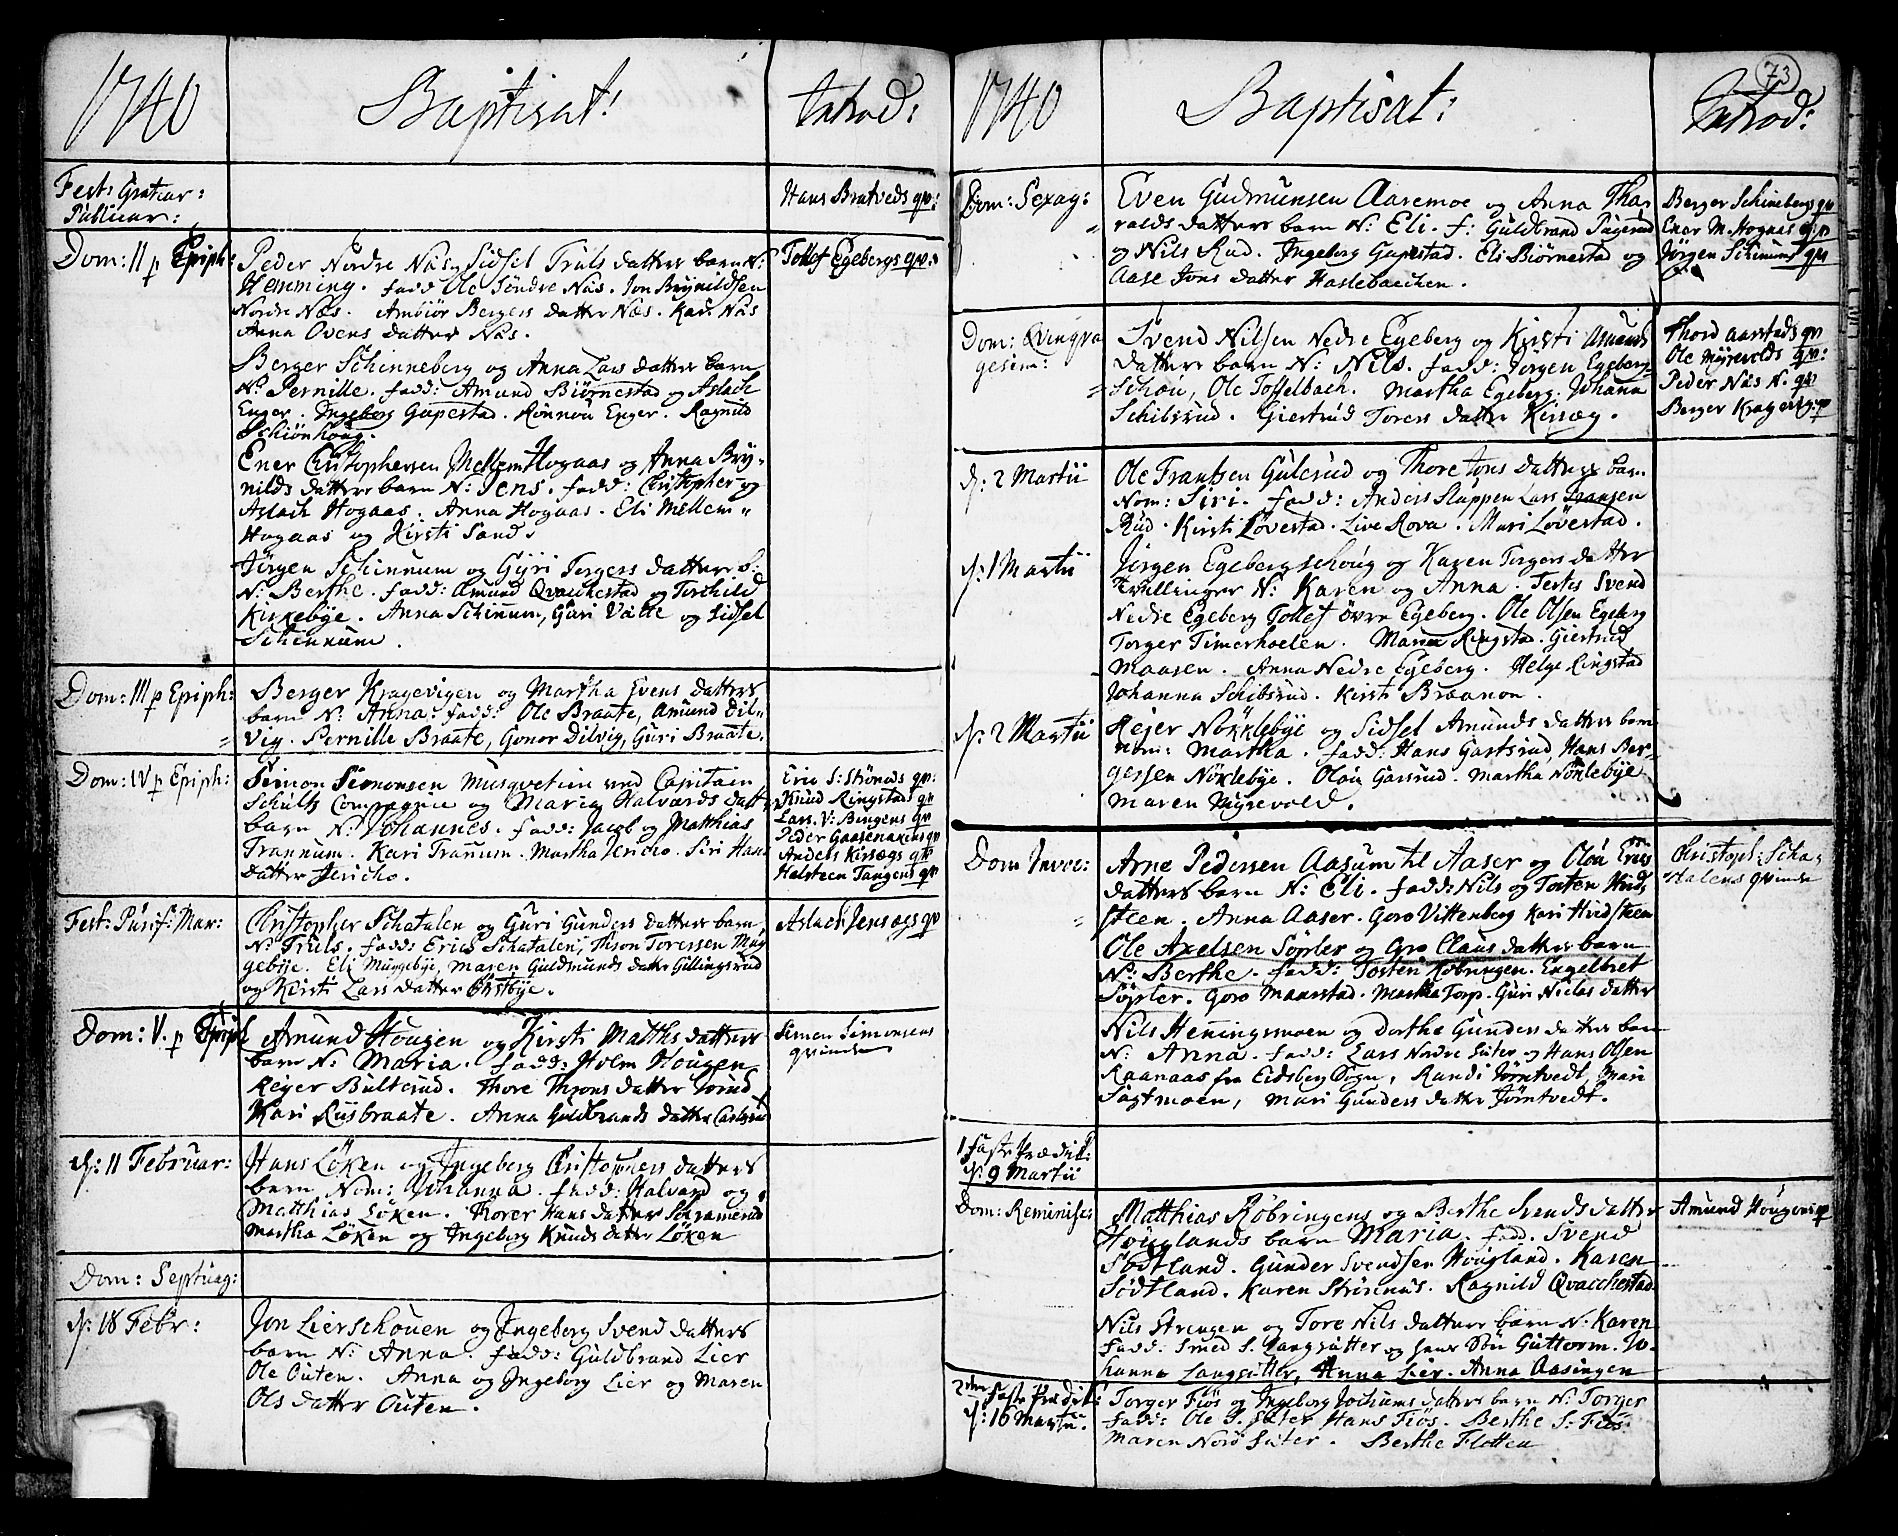 1740
Baptisat:
Introd:
Fest: Gratiar:
Publicar:
Hans Bratveds qv:
Dom: II p Epiph:
Peder Nordre Næs, Sidsel Truls datters barn N:
Hemming. fadd: Ole Søndre Næs. Jon Brynildsen
Nordre Næs. Ambiør Bergers datter Næs. Kari Næs
Anna Ovens datter Næs.
Tollef Egebergs qv:
Berger Schinneberg og Anna Lars datters barn
N: Pernille. fadd: Amund Biørnestad og Aslach
Enger. Ingeborg Gapestad. Rønnou Enger. Ragnild
Schiønhoug.
Ener Christophersen Mellem Hogaas og Anna Bry-
nilds datters barn N: Jens. fadd: Christopher og
Aslach Hogaas. Anna Hogaas. Eli Mellem-
Hogaas og Kirsti Sand.
Jørgen Schinnum og Gyri Torgers datters b:
N: Berthe. fadd: Amund Qvachestad og Torchild
Kirkebye. Anna Schinnum, Guri Valle og Sidsel
Schinnum.
Dom: III p Epiph:
Berger Kragevigen og Martha Evens datters
barn N: Anna. fadd: Ole Braate, Amund Dil-
vig. Pernille Braate, Gonor Dilvig, Guri Braate.
Dom: IV p Epiph:
Simon Simonsen Musqveteer ved Capitain
Schultz Compagnie og Maria Halvords datt:
barn N: Johannes. fadd: Jacob og Matthias
Trannum. Kari Trannum. Martha Jericho. Siri Hans
datter Jericho.
Eric S: Strønæs qv:
Knud Ringstads qv
Lars V: Bingens qv
Peder Gaasenaxens qv
Anders Kirsægs qv
Halsteen Tangens qv
Fest: Purif: Mar:
Christopher Schatalen og Guri Gunders datters barn
N: Truls. fadd: Erich Schatalen, Thron Toressen Mug
gebye. Eli Muggebye, Maren Guldmunds datter Gillingsrud
og Kirsti Lars datter Østbye.
Aslach Jensægs qv
Dom: V. p Epiph
Amund Hougen og Kirsti Matths datters
barn N: Maria. fadd: Holm Hougen
Reyer Bulterud. Thore Throns datter Jorud
Kari Rusbraate. Anna Guldbrands datter Carlsrud
Simon Simonsens
qvinde
d: 11 Februar:
Hans Løken og Ingeborg Christophers datters
barn Nom: Johanna. fadd: Halvard og
Matthias Løken. Thorer Hans datter Schramerud
Martha Løken og Ingeborg Knuds datter Løken
Dom: Septuag:
d: 18 Febr:
Jon Lierschouen og Ingeborg Svend datters
barn N: Anna. fadd: Guldbrand Lier
Ole Outen. Anna og Ingeborg Lier og Maren
Ols datter Outen.
73
1740
Baptisat:
Introd:
Dom: Sexag:
Even Gudmunsen Aaremoe og Anna Tha-
ralds datters barn N: Eli. f: Guldbrand Tugerud
og Nils Rud. Ingeborg Gapestad. Eli Biørnestad og
Aase Jons datter Haslebaechen.
Berger Schinebergs qv
Ener M. Hognes q:v
Jørgen Schinums qv
Dom: Qvinqva
gesim:
Svend Nilsen Nedre Egeberg og Kirsti Amunds
datters barn N: Nils. fadd: Jørgen Egeberg-
schou, Ole Toffelbach. Martha Egeberg. Johana
Schibsrud. Giertrud Torers datter Kirsæg.
Thord Aarstads qv
Ole Myrvolds qv:
Peder Næs N. qv
Berger Kragevig: qv
d: 2 Martii
Ole Frantsen Gulerud og Thore Jons datters barn
Nom: Siri. fadd: Anders Slappen Lars Fransen
Rud. Kirsti Løvestad. Live Rova. Mari Løvestad.
d: 1 Martii
Jørgen Egebergschoug og Karen Torgers datter
Tvillinger N: Karen og Anna. Testes Svend
Nedre Egeberg Tollef øvre Egeberg. Ole Olsen Egeberg
Torger Timerhoelen. Maria Ringstad. Giertrud
Maasen. Anna Nedre Egeberg. Helge Ringstad
Johanna Schibsrud. Kirsti Braanon.
d: 2 Martii
Rejer Nøkklebye og Sidsel Amunds datters barn
nom: Martha. fadd: Hans Gartsrud, Hans Ber-
gersen Nøklebye. Oloug Garsrud. Martha Nøklebye
Maren Myrevold.
Dom Invoc:
Arne Pedersen Aasum til Aaser og Olou Erics
datters barn N: Eli. fadd: Nils og Tosten Hvid-
steen. Anna Aaser. Goro Vittenberg Kari Hvidsteen
Christoph: Scha-
talens qvinde
Ole Axelsen Søpler og Gro Claus datters barn
N: Berthe. fadd: Tosten Røbringen. Engelbret
Søpler. Goro Maarstad. Martha Torp. Guri Niclas datter
Nils Heningsmoen og Dorthe Gunders datters barn
N: Anna. fadd: Lars Nordre Sæter og Hans Olsen
Raanaas fra Eidsberg Sogn, Randi Jørntvedt, Mari
Sagtmoen, Mari Gunders datter Jørntvedt.
1 Faste Prædik:
d: 9 Martii
Dom: Reminisc:
Matthias Røbringens og Berthe Svends datter
Houglands barn Maria. fadd. Svend
Sødtland. Gunder Svendsen Hougland. Karen
Sødtland. Karen Strønnæs. Ragnild Qvacchestad.
Amund Hougens qv
Nils Strengen og Tore Nils datters barn N: Karen
fadd: Smed S. Langsætter og hans Søn Guttorm. Jo-
hanna Langsætter, Anna Lier. Anna Aasingen
2den Faste Prædik:
d: 16 Martii.
Torger Fiøs og Ingeborg Jochums datters barn N: Torger
fadd: Ole S. Sæter Hans Fiøs. Berthe S: Fiøs
Maren Nord Sæter. Berthe Flotten